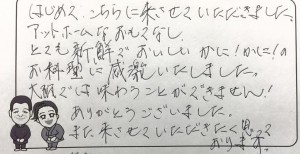 はじめて、こちらに来させていただきました。
アットホームなおもてなし、
とても新鮮でおいしいかに!かに!の
お料理に感激いたしました。
大阪では味わうことができません!
ありがとうございました。
また、来させていただきたく思って
おります。